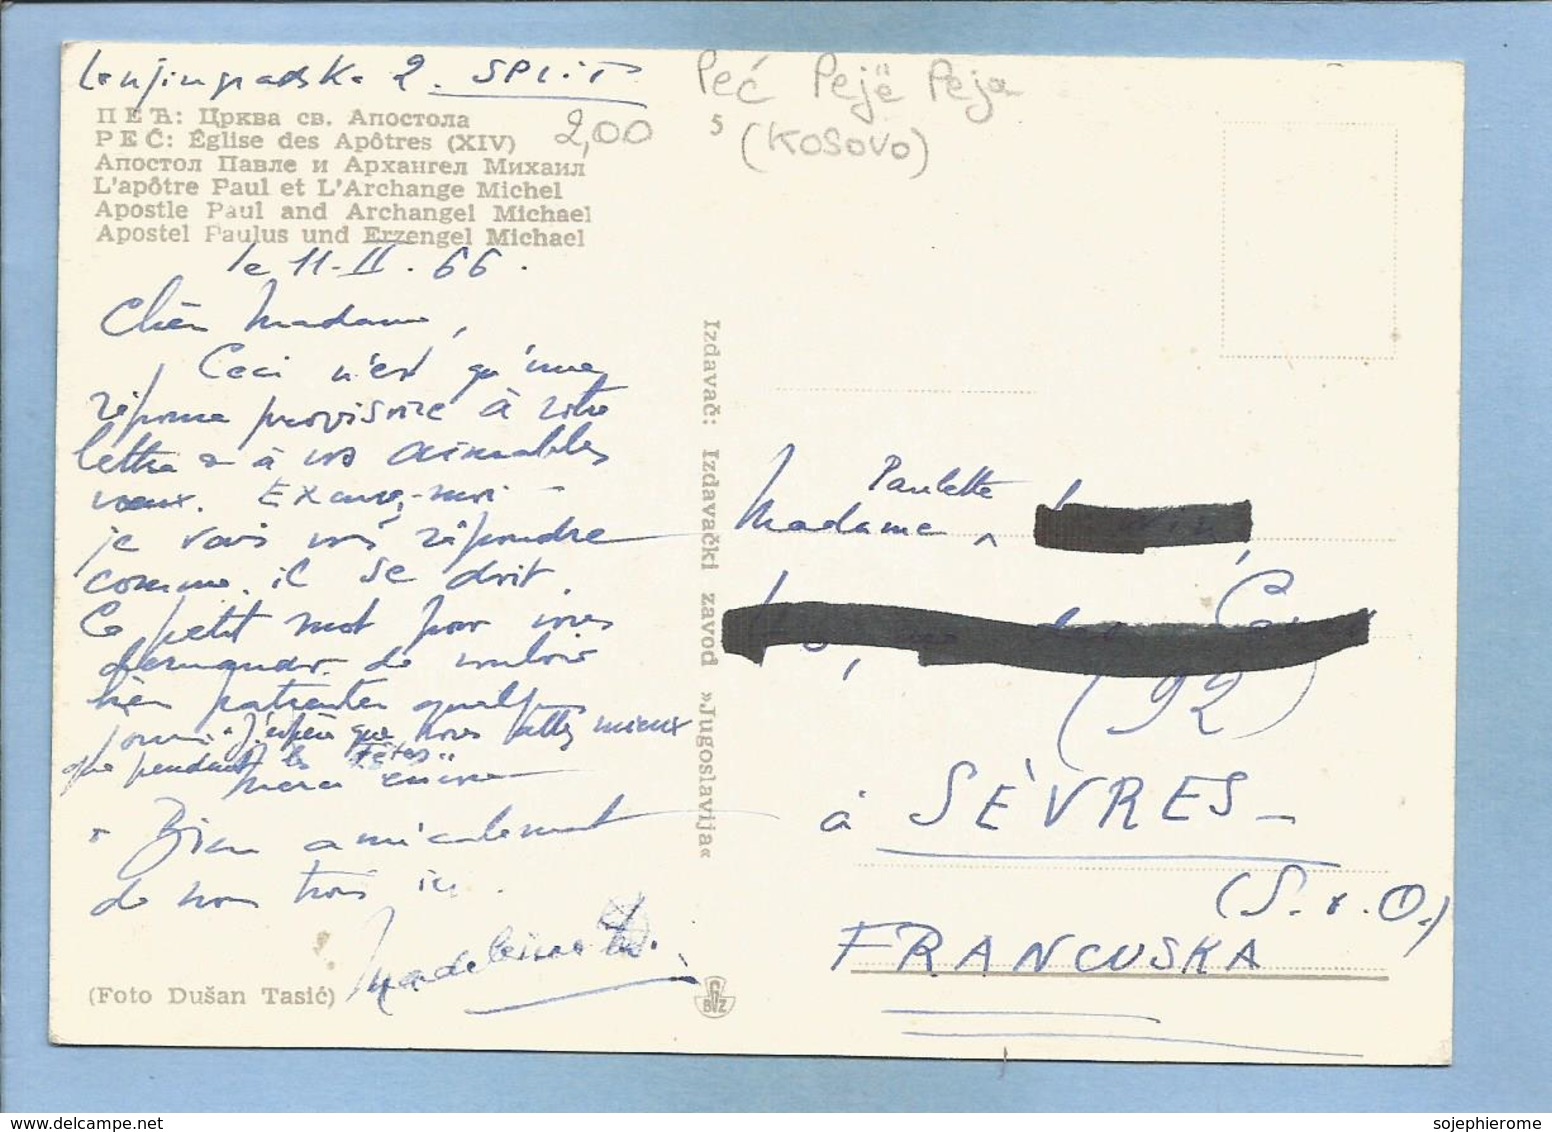 Lenjingradska 2. SPLIT
ПЕЋ: Црква св. Апостола
PEĆ: Église des Apôtres (XIV)
Апостол Павле и Архангел Михаил
L'apôtre Paul et L'Archange Michel
Apostle Paul and Archangel Michael
Apostel Paulus und Erzengel Michael
2,00
le 11-II.66.
Chère Madame,
Ceci n'est qu'une
réponse provisoire à votre
lettre et à vos aimables
vœux. Excusez-moi -
je vais vous répondre
comme il se doit.
Ce petit mot pour vous
demander de vouloir
bien patienter quelques
jours. J'espère que vous allez mieux
que pendant les "Fêtes"
Merci encore
Bien amicalement
de nous trois ici.
Madeleine
(Foto Dušan Tasić)
Izdavač: Izdavački zavod »Jugoslavija«
BGZ
Peć Pejë Peja
5
(KOSOVO)
Paulette
Madame
(92)
à SÈVRES-
(S. & O.)
FRANCUSKA
delcampe.net
sojephierome